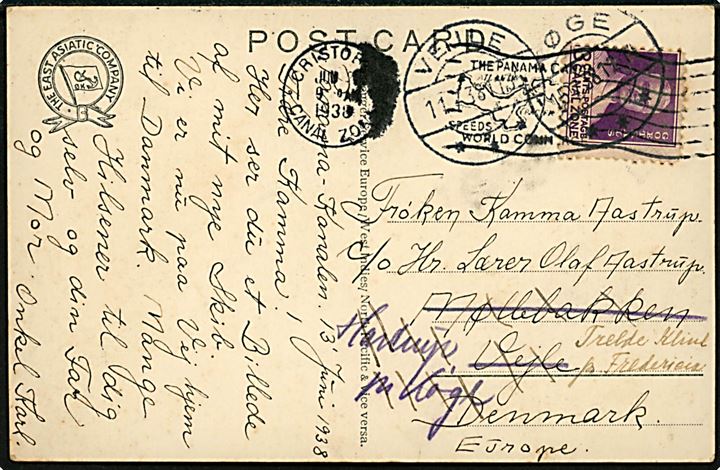 POST CARD
THE EAST ASIATIC COMPANY
Panama-Kanalen. 13 Juni 1938
Kære Kamma!
Her ser du et Billede
af mit nye Skib.
Vi er nu paa Vej hjem
til Danmark. Mange
Hilsener til dig
selv og din Far
og Mor. Onkel Karl
Service Europe, West Indies, North Pacific & vice versa.
CRISTOBAL
JUN
1938
CANAL ZONE
VEJLE
KØGE
THE PANAMA CANAL
ATLANTIC
SPEEDS
WORLD COMM
CENTS POSTAGE
CANAL ZONE
GORGAS
Frøken Kamma Aastrup.
c/o Hr. Lærer Olaf Aastrup.
Møllebakken
Vejle
Trelde Klint
pr. Fredericia
Hastrup
pr Køge
Denmark.
Europe.